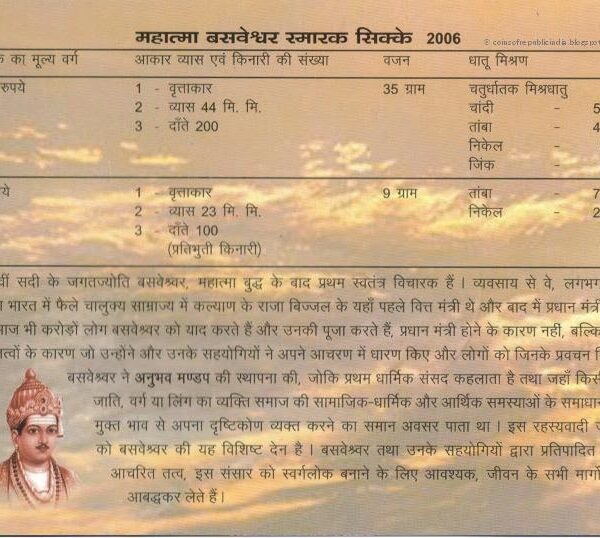 महात्मा बसवेश्वर स्मारक सिक्के 2006
© coinsofrepublicindia.blogspot
का मूल्य वर्ग आकार व्यास एवं किनारी की संख्या वजन धातू मिश्रण
रुपये 1 - वृत्ताकार 35 ग्राम चतुर्धातक मिश्रधातु
2 - व्यास 44 मि. मि. चांदी - 5
3 - दाँते 200 तांबा - 4
निकेल -
जिंक -
1 - वृत्ताकार 9 ग्राम तांबा - 7
2 - व्यास 23 मि. मि. निकेल - 2
3 - दाँते 100
(प्रतिभुती किनारी)
वीं सदी के जगतज्योति बसवेश्वर, महात्मा बुद्ध के बाद प्रथम स्वतंत्र विचारक हैं । व्यवसाय से वे, लगभग
भारत में फैले चालुक्य साम्राज्य में कल्याण के राजा बिज्जल के यहाँ पहले वित्त मंत्री थे और बाद में प्रधान मंत्री
भी करोड़ों लोग बसवेश्वर को याद करते हैं और उनकी पूजा करते हैं, प्रधान मंत्री होने के कारण नहीं, बल्कि
के कारण जो उन्होंने और उनके सहयोगियों ने अपने आचरण में धारण किए और लोगों को जिनके प्रवचन
बसवेश्वर ने अनुभव मण्डप की स्थापना की, जोकि प्रथम धार्मिक संसद कहलाता है तथा जहाँ किसी
जाति, वर्ग या लिंग का व्यक्ति समाज की सामाजिक-धार्मिक और आर्थिक समस्याओं के समाधान
मुक्त भाव से अपना दृष्टिकोण व्यक्त करने का समान अवसर पाता था । इस रहस्यवादी
को बसवेश्वर की यह विशिष्ट देन है । बसवेश्वर तथा उनके सहयोगियों द्वारा प्रतिपादित
आचरित तत्व, इस संसार को स्वर्गलोक बनाने के लिए आवश्यक, जीवन के सभी मार्गो
आबद्धकर लेते हैं ।